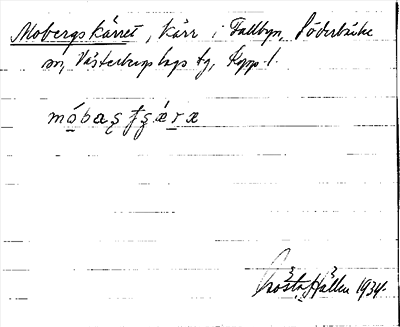 Mobergskärret, Kärr i Tallbyn, Söderbärke
sn, Västerbergslags tg, Kopp. l.
Gösta Hållen 1934